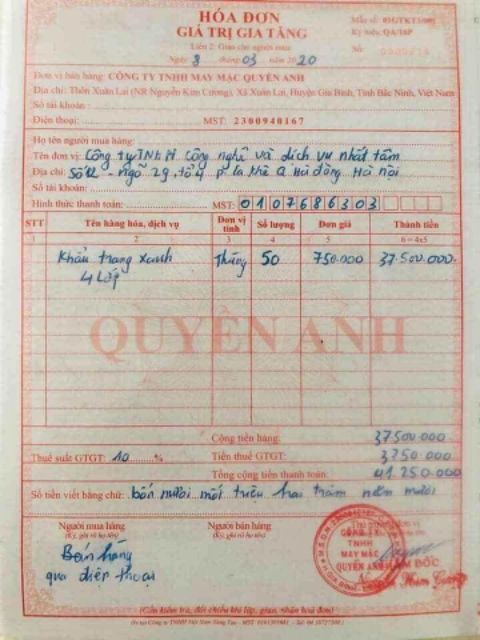 HÓA ĐƠN
GIÁ TRỊ GIA TĂNG
Liên 2: Giao cho người mua
Ngày 8 tháng 03 năm 2020
Mẫu số: 01GTKT3/001
Ký hiệu: QA/18P
Số:
Đơn vị bán hàng: CÔNG TY TNHH MAY MẶC QUYÊN ANH
Địa chỉ: Thôn Xuân Lai (NR Nguyễn Kim Cương), Xã Xuân Lai, Huyện Gia Bình, Tỉnh Bắc Ninh, Việt Nam
Số tài khoản:
Điện thoại: MST: 2300940167
Họ tên người mua hàng:
Tên đơn vị: Công ty TNHH Công nghệ và dịch vụ nhất tâm
Địa chỉ: Số 12 - ngõ 29, tổ 4 P. la khê Q Hà đông Hà nội
Số tài khoản:
Hình thức thanh toán: MST: 0107686303
STT Tên hàng hóa, dịch vụ Đơn vị tính Số lượng Đơn giá Thành tiền
1 2 3 4 5 6 = 4x5
Khẩu trang xanh Thùng 50 750.000 37.500.000
4 Lớp
QUYÊN ANH
Cộng tiền hàng: 37500.000
Thuế suất GTGT: 10 % Tiền thuế GTGT: 3750.000
Tổng cộng tiền thanh toán: 41.250.000
Số tiền viết bằng chữ: bốn mươi mốt triệu hai trăm năm mươi
Người mua hàng Người bán hàng
(Ký, ghi rõ họ tên) (Ký, ghi rõ họ tên)
Bán hàng
qua điện thoại
CÔNG TY
TNHH
MAY MẶC
QUYÊN ANH
GIÁM ĐỐC
(Cần kiểm tra, đối chiếu khi lập, giao, nhận hóa đơn)